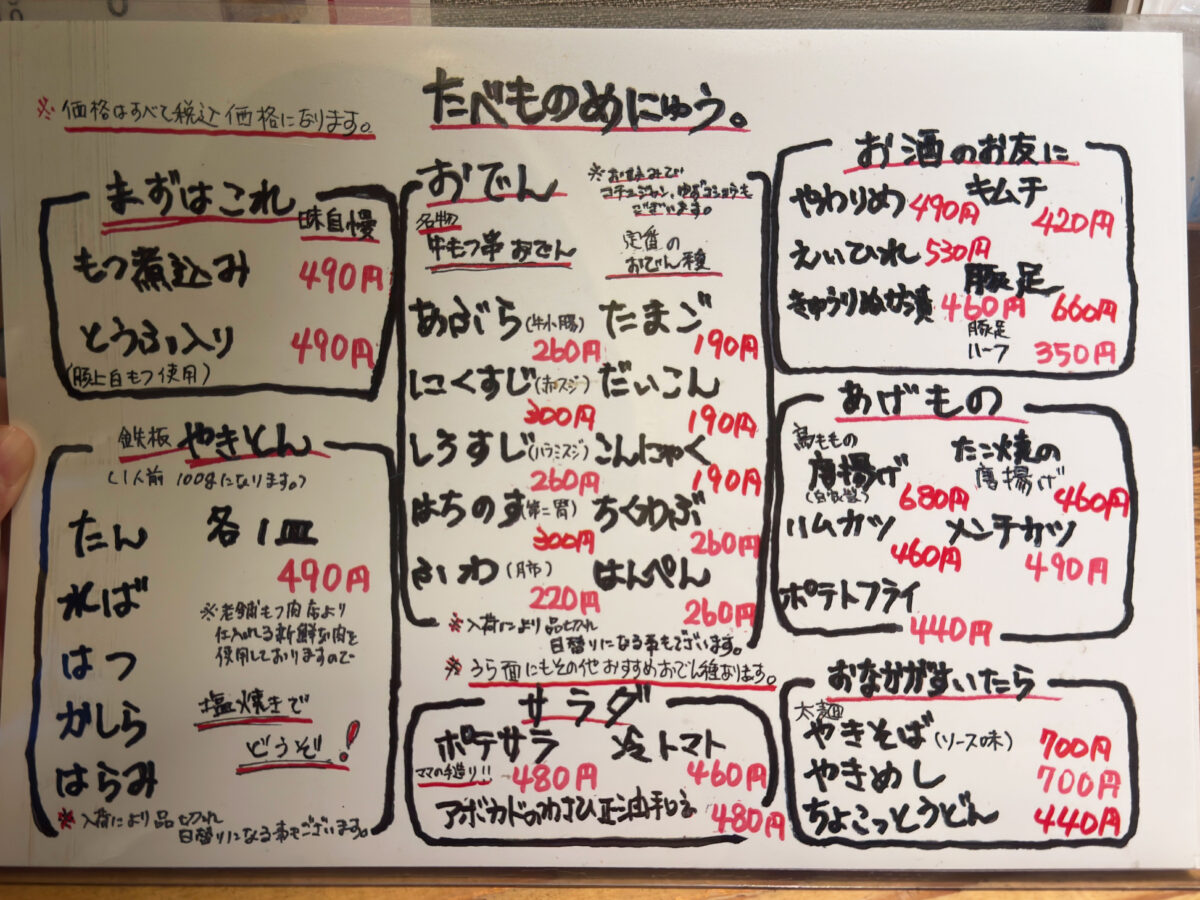 たべものめにゅう。
※価格はすべて税込価格になります。
まずはこれ
味自慢
もつ煮込み 490円
とうふ入り 490円
(豚上白もつ使用)
鉄板 やきとん
(1人前 100gになります。)
たん
れば
はつ
かしら
はらみ
各1皿
490円
※老舗もつ肉店より
仕入れる新鮮な肉を
使用しておりますので
塩焼きで
どうぞ!
※入荷により品切れ
日替りになる事もございます。
おでん
※お好みで
コチュジャン、ゆずコショウも
ございます。
名物
牛もつ串おでん
定番の
おでん種
あぶら(牛小腸) 260円
たまご 190円
にくすじ(赤スジ) 300円
だいこん 190円
しろすじ(ハラミスジ) 260円
こんにゃく 190円
はちのす(第二胃) 300円
ちくわぶ 260円
ふわ(肺) 220円
はんぺん 260円
※入荷により品切れ
日替りになる事もございます。
※うら面にもその他おすすめおでん種あります。
サラダ
ポテサラ
ママの手造り!! 480円
冷トマト 460円
アボカドのわさび正油和え 480円
お酒のお友に
やわりめ 490円
キムチ 420円
えいひれ 530円
きゅうりぬか漬 460円
豚足 660円
豚足
ハーフ 350円
あげもの
鳥ももの
唐揚げ
680円
たこ焼の
唐揚げ 460円
ハムカツ 460円
メンチカツ 490円
ポテトフライ 440円
おなかがすいたら
太麺
やきそば(ソース味) 700円
やきめし 700円
ちょこっとうどん 440円